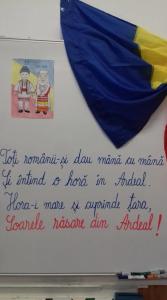 Toți românii-și dau mână cu mână
Și întind o horă în Ardeal.
Hora-i mare și cuprinde țara,
Soarele răsare din Ardeal!